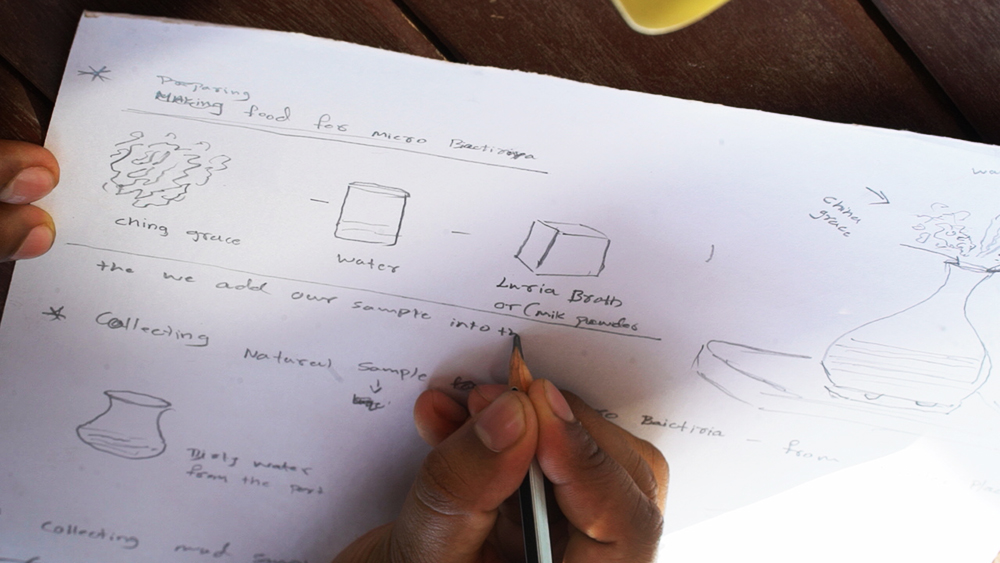 Preparing
Making food for Micro Bactiriya
ching grace
water
Luria Broth
or (mik powder
china
grace
wa
the we add our sample into th
Collecting
Natural Sample
Baictiria - from
Dirty water
from the port
Collecting mud